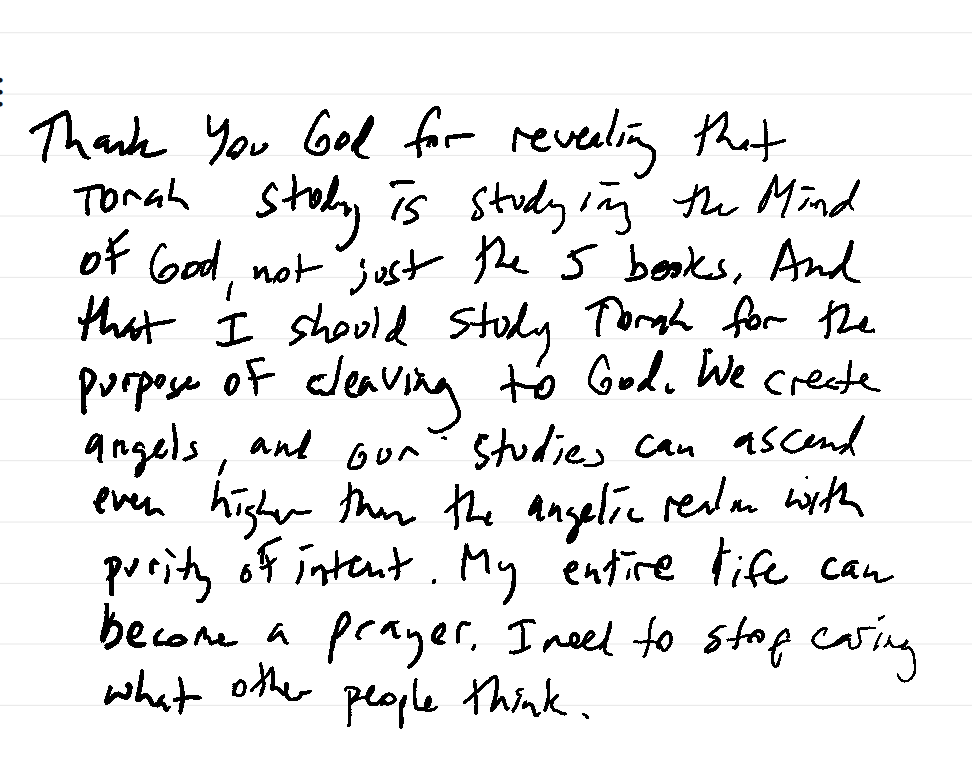 Thank You God for revealing that
Torah study is studying the Mind
of God, not just the 5 books. And
that I should study Torah for the
purpose of cleaving to God. We create
angels, and our studies can ascend
even higher than the angelic realm with
purity of intent. My entire life can
become a prayer. I need to stop caring
what other people think.